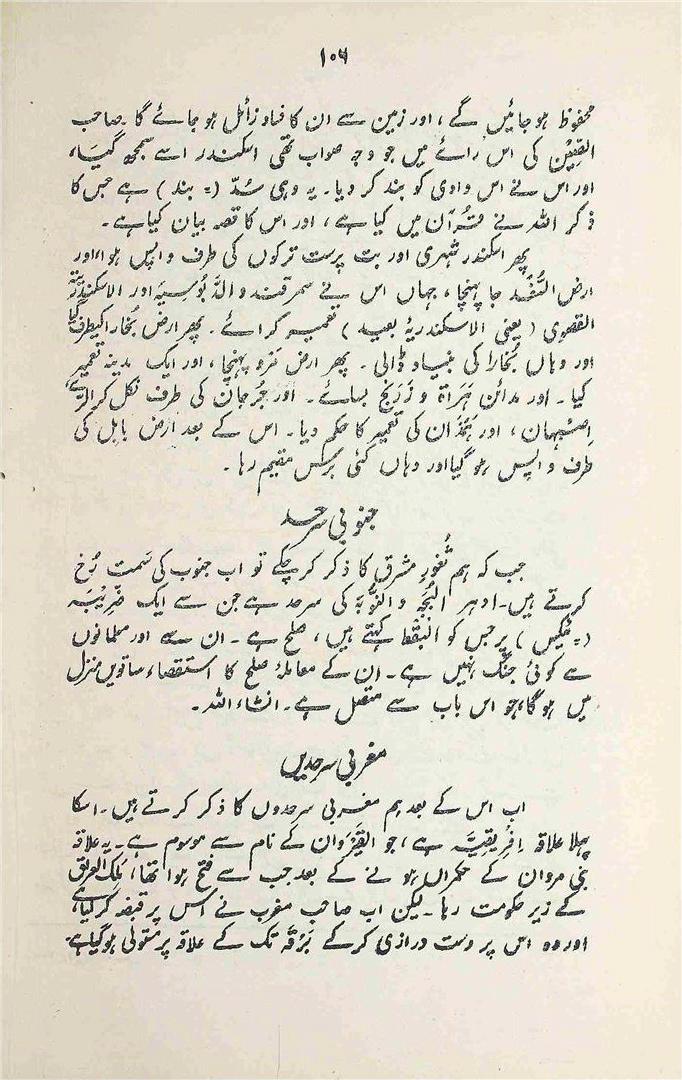 ۱۰۶
محفوظ ہو جائیں گے، اور زمین سے ان کا فساد زائل ہو جائے گا۔ صاحب
الصِّیْن کی اس رائے میں جو وجہ صواب تھی اسکندر اسے سمجھ گیا،
اور اس نے اس وادی کو بند کر دیا۔ یہ وہی سُدّ (= بند) ہے جس کا
ذکر اللہ نے قرآن میں کیا ہے، اور اس کا قصہ بیان کیا ہے۔
پھر اسکندر شہری اور بت پرست ترکوں کی طرف واپس ہوا، اور
ارض السُّغْد جا پہنچا، جہاں اس نے سمرقند و الدَّبُوسِیَہ اور الاسکندریَّۃ
القصوٰی (یعنی الاسکندریۂ بعید) تعمیر کرائے۔ پھر ارض بُخارا کیطرف گیا
اور وہاں بُخارا کی بنیاد ڈالی۔ پھر ارض مَرو پہنچا، اور ایک مدینہ تعمیر
کیا۔ اور مدائن ہَرَاۃ و زَرَنج بسائے۔ اور جُرجان کی طرف نکل کر الرَّے،
اِصْبَہان، اور ہَمَذان کی تعمیر کا حکم دیا۔ اس کے بعد ارض بابل کی
طرف واپس ہو گیا اور وہاں کئی برس مقیم رہا۔
جنوبی سرحد
جب کہ ہم ثُغُورِ مشرق کا ذکر کر چکے تو اب جنوب کی سَمت رُخ
کرتے ہیں۔ ادہر البُجَہ والنُّوبَہ کی سرحد ہے جن سے ایک ضَرِیْبَہ
(= ٹیکس) پر جس کو البَقْط کہتے ہیں، صلح ہے۔ ان سے اور مسلمانوں
سے کوئی جنگ نہیں ہے۔ ان کے معاملۂ صلح کا استقصاء ساتویں منزل
میں ہوگا، جو اس باب سے متصل ہے۔ انشاء اللہ۔
مغربی سرحدیں
اب اس کے بعد ہم مغربی سرحدوں کا ذکر کرتے ہیں۔ اسکا
پہلا علاقہ اِفْرِیْقِیَّہ ہے، جو القَیْرَوان کے نام سے موسوم ہے۔ یہ علاقہ
بنی مروان کے حکمراں ہونے کے بعد جب سے فتح ہوا تھا، مَلِک العراق
کے زیر حکومت رہا۔ لیکن اب صاحبِ مغرب نے اس پر قبضہ کر لیا ہے،
اور وہ اس پر دست درازی کر کے بَرْقَہ تک کے علاقہ پر متولی ہوگیا ہے۔